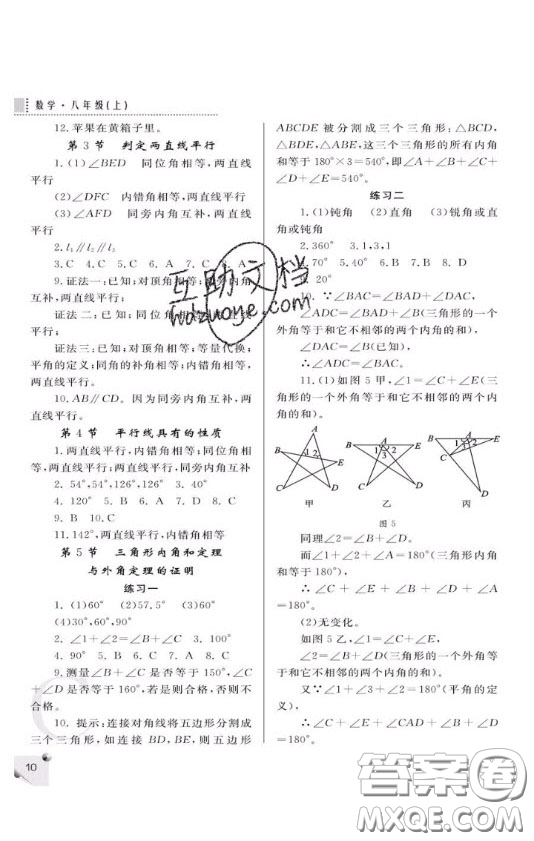 数学·八年级(上)
12.苹果在黄箱子里。
第3节 判定两直线平行
1.(1)∠BED 同位角相等,两直线
平行
(2)∠DFC 内错角相等,两直线平行
(3)∠AFD 同旁内角互补,两直线
平行
2.l₁∥l₂∥l₃
3.C 4.C 5.C 6.A 7.C 8.
9.证法一:已知;对顶角相等;同旁内角
互补,两直线平行
证法二:已知;对顶角相等;同位角相
等,两直线平行
证法三:已知;对顶角相等;等量代换;
平角的定义;同角的补角相等;内错角相等,
两直线平行
10.AB∥CD。因为同旁内角互补,两
直线平行。
第4节 平行线具有的性质
1.两直线平行,内错角相等;同位角相
等,两直线平行;两直线平行,同旁内角互补
2.54°,54°,126°,126° 3.40°
4.120° 5.B 6.D 7.D 8.C
9.B 10.C
11.142°,两直线平行,内错角相等
第5节 三角形内角和定理
与外角定理的证明
练习一
1.(1)60° (2)57.5° (3)60°
(4)30°,60°,90°
2.∠1+∠2=∠B+∠C 3.110°
4.90° 5.C 6.A 7.A 8.C
9.测量∠B+∠C是否等于150°,∠C
+∠D是否等于160°,若是则合格,否则不
合格。
10.提示:连接对角线将五边形分割成
三个三角形,如连接BD,BE,则五边形
10
ABCDE被分割成三个三角形:△BCD,
△BDE,△ABE,这三个三角形的所有内角
和等于180°×3=540°,即∠A+∠B+∠C+
∠D+∠E=540°。
练习二
1.(1)钝角 (2)直角 (3)锐角或直
角或钝角
2.360° 3.1,3,1
4.70° 5.40° 6.B 7.A 8.A
20°
∵∠BAC=∠BAD+∠DAC,
∠ADC=∠BAD+∠B(三角形的一个
外角等于和它不相邻的两个内角的和),
∠DAC=∠B(已知),
∴∠ADC=∠BAC。
11.(1)如图5甲,∠1=∠C+∠E(三
角形的一个外角等于和它不相邻的两个内
角的和)。
A
B
1
2
E
C
D
甲
A
B
1
3
2
E
C
D
乙
A
B
1
3
2
E
C
D
丙
图5
同理∠2=∠B+∠D。
而∠1+∠2+∠A=180°(三角形内角
和等于180°),
∴∠C+∠E+∠B+∠D+∠A
=180°。
(2)无变化。
如图5乙,∵∠1=∠C+∠E,
∠2=∠B+∠D(三角形的一个外角等
于和它不相邻的两个内角的和)。
又∵∠1+∠3+∠2=180°(平角的定
义),
∴∠C+∠E+∠CAD+∠B+∠D
=180°。
互助文档
hdzuoye.com
答案圈
MXQE.COM